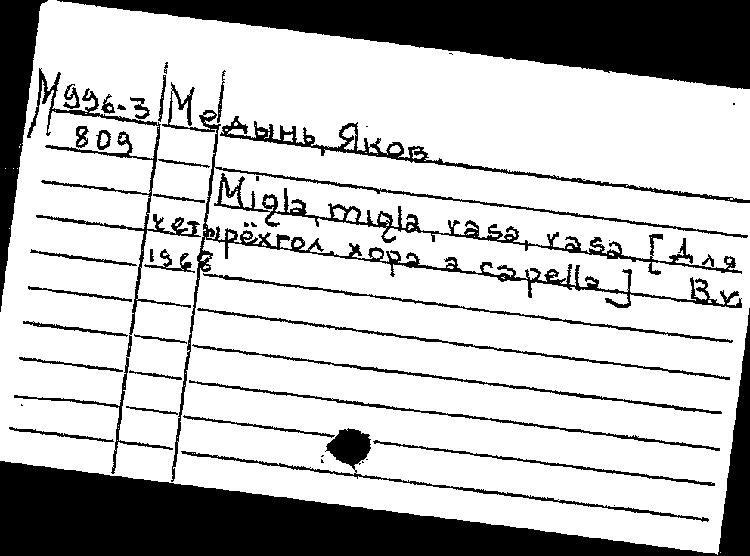 М996-3 Медынь, Яков.
809
Migla, migla, rasa, rasa. [Для
четырёхгол. хора a capella.] В.к.
1968